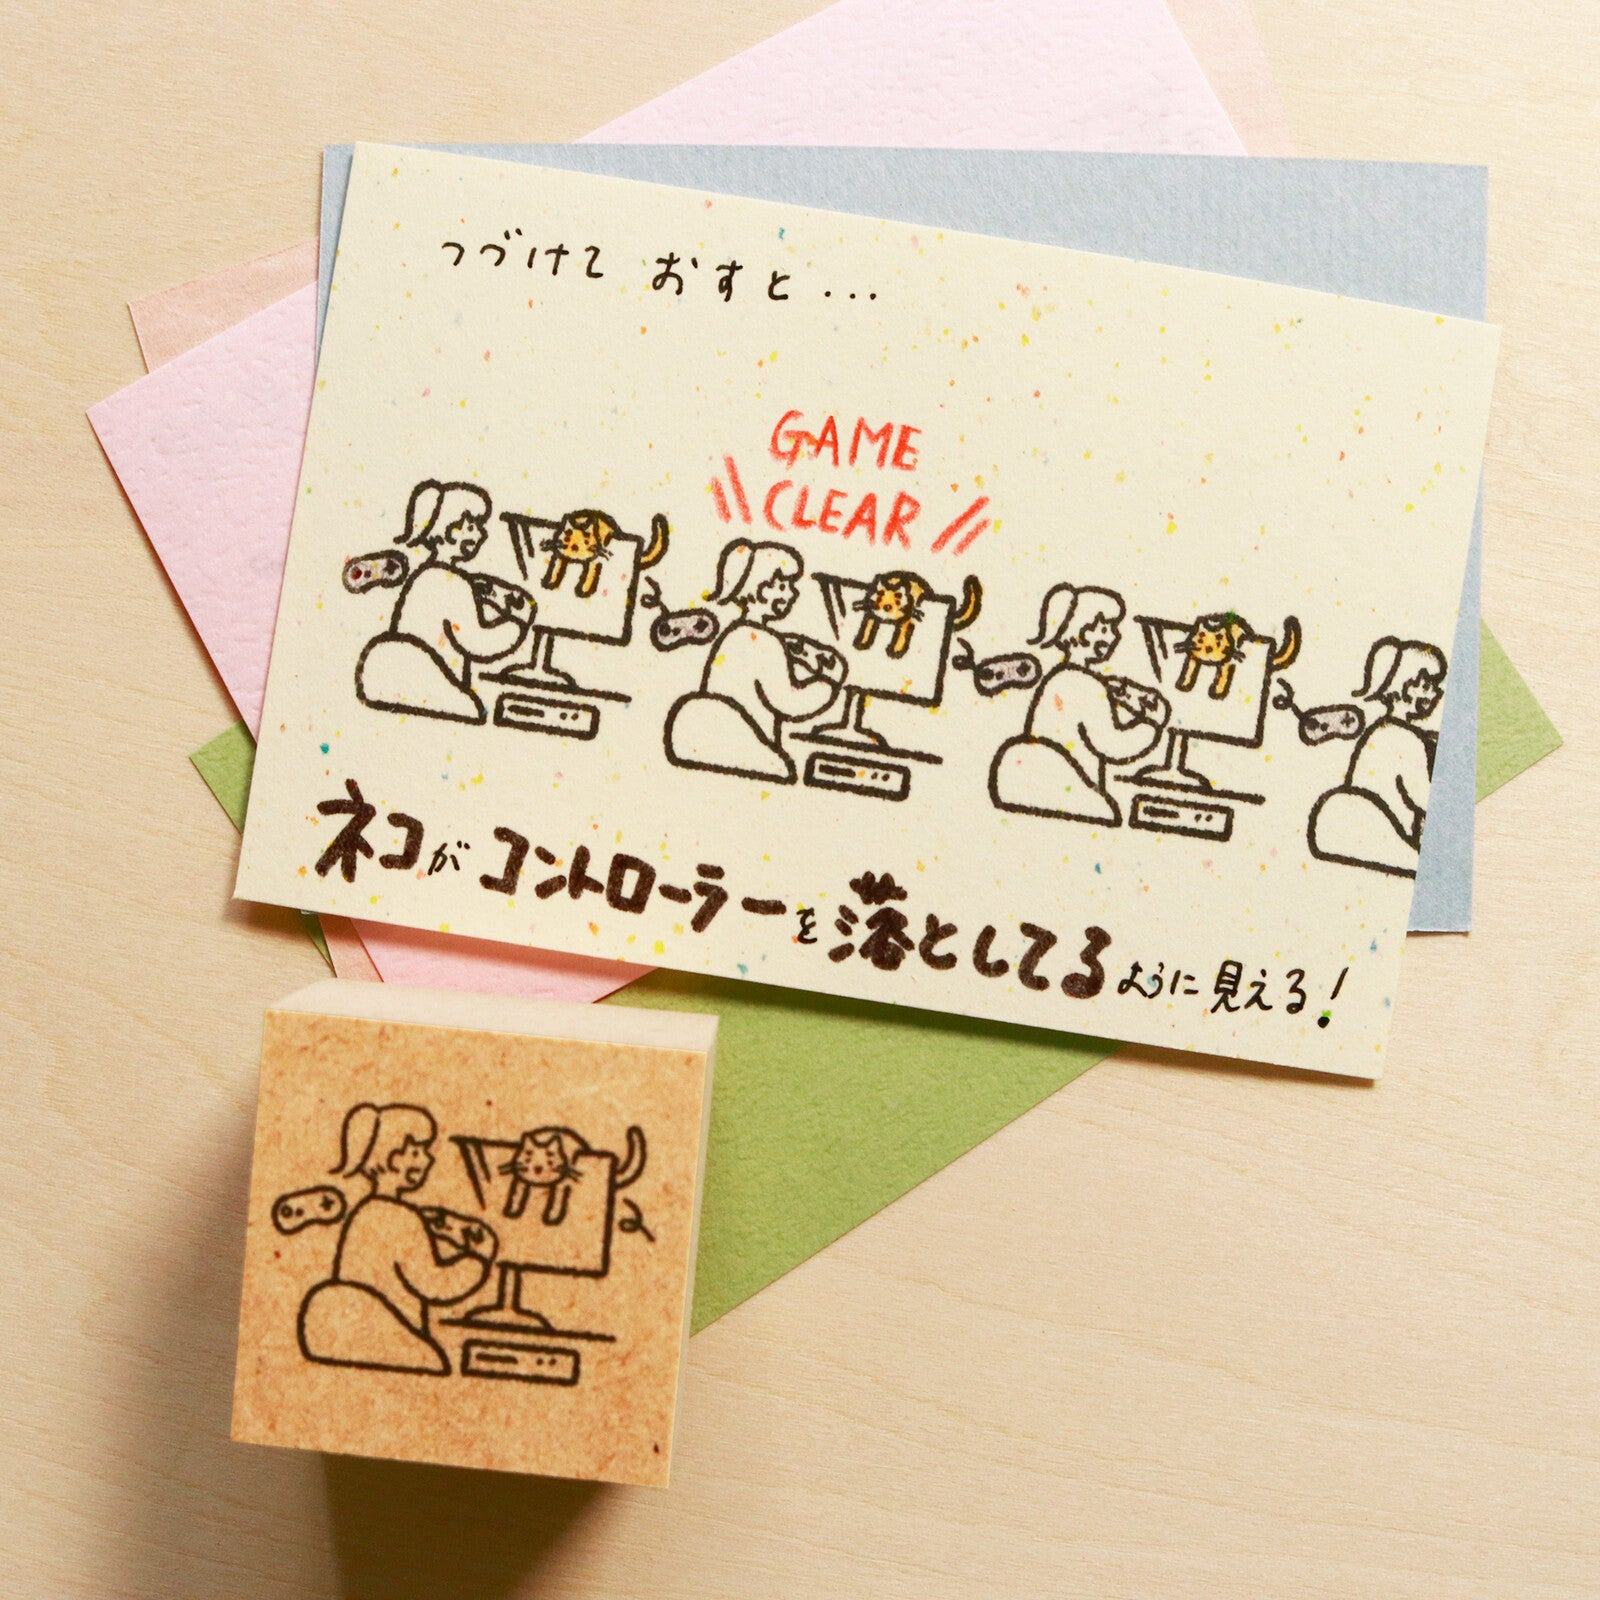 つづけて おすと...
GAME
CLEAR
ネコがコントローラーを落としてるように見える!